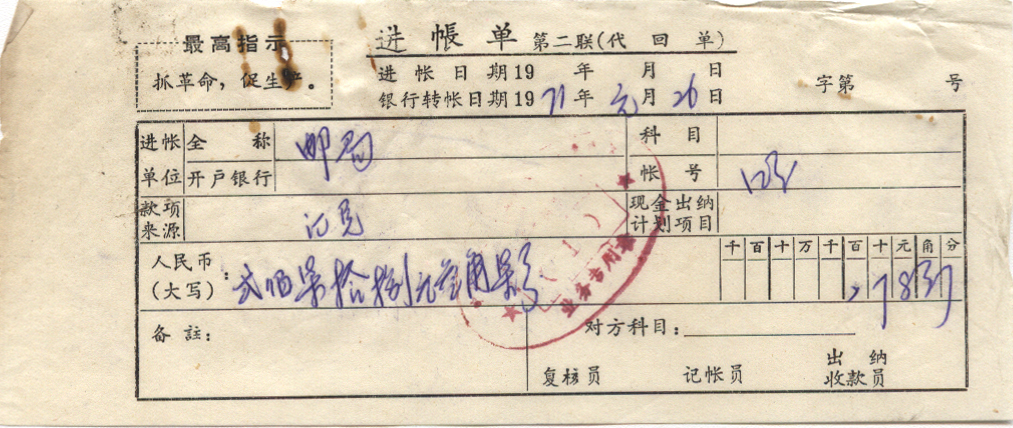 最高指示
抓革命，促生产。
进帐单 第二联(代回单)
进帐日期19 年 月 日
银行转帐日期1971年元月26日
字第 号
进帐单位
全称 邮局
开户银行
科目
帐号
款项来源
现金出纳计划项目
人民币(大写): 弍佰柒拾捌元叁角
千百十万千百十元角分
业务专用章
备註:
对方科目:
复核员
记帐员
出纳收款员